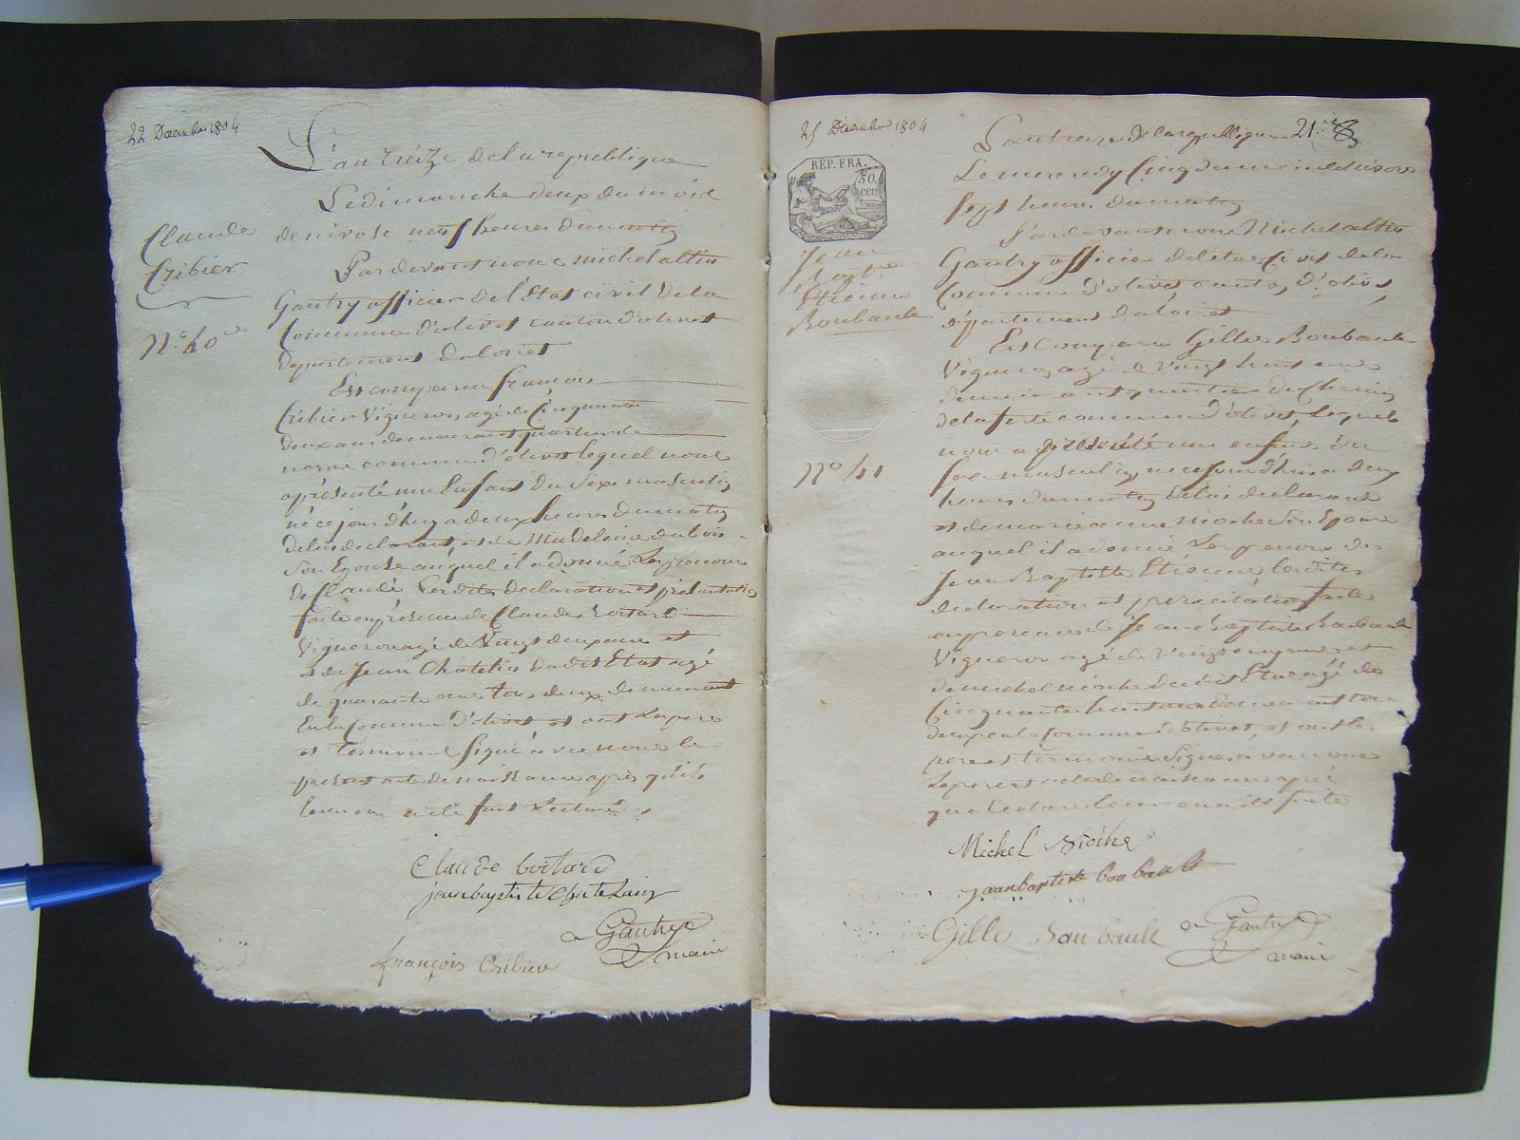 22 Décembre 1804
Claude
Cribier
N.° 40
L'an treize de la republique
Le dimanche deux du mois
de nivose neuf heures du matin
Pardevant nous michel altin
Gautry officier de l'Etat civil de la
Commune d'olivet canton d'olivet
departement du loiret
Est comparu françois
Cribier Vigneron agé de Cinquante
deux ans demeurant quartier de
commune d'olivet lequel nous
a présenté un Enfant du Sexe masculin
né ce jourd'huy a deux heures du matin
de lui declarant et de Madelaine dubois
Son Epouse auquel il a donné Les prenoms
de Claude Les dites declaration et présentation
faite en présence de Claude
Vigneron agé de Vingt deux ans et
de Jean Chatelin dudit Etat agé
de quarante ans tous deux demeurant
En la Commune d'olivet et ont Les pere
et temoins Signé avec nous le
présent acte de naissance après qu'il
leur en a été fait Lecture
Claude
jean baptiste Chatelain
Gautry
maire
François Cribier
25 Décembre 1804
REP. FRA.
50
cen
Jean
Bapte
Etienne
Boubault
N° 41
21
L'an treize de la republique
Le mercredy Cinq du mois de nivose
Sept heures du matin
Pardevant nous Michel altin
Gautry officier de l'état Civil de la
Commune d'olivet canton d'olivet
département du loiret
Est Comparu Gilles Boubault
Vigneron agé de Vingt huit ans
demeurant quartier du Chemin
de la ferté commune d'olivet Lequel
nous a présenté un enfant du
sexe masculin né ce jourd'hui a deux
heures du matin de lui declarant
et de marie anne Son Epouse
auquel il a donné Les prenoms de
Jean Baptiste Etienne les dites
declaration et présentation faite
en presence de Jean Baptiste Boubault
Vigneron agé de Vingt ans et
de michel dudit Etat agé de
Cinquante huit ans demeurant tous
deux en la Commune d'olivet, et ont le
pere et temoins Signé avec nous
Le present acte de naissance apres
que lecture leur en a été faite
Michel
jean baptiste boubault
Gille Boubault
Gautry
maire